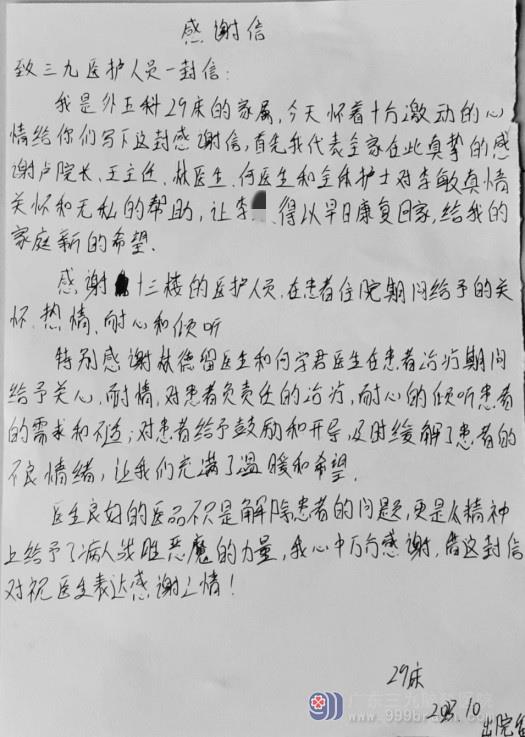 感谢信
致三九医护人员一封信:
我是外五科29床的家属,今天怀着十分激动的心
情给你们写下这封感谢信,首先我代表全家在此真挚的感
谢卢院长、王主任、林医生、何医生和全体护士对李敏真情
关怀和无私的帮助,让李 得以早日康复回家,给我的
家庭新的希望.
感谢 十三楼的医护人员,在患者住院期间给予的关
怀、热情、耐心和倾听
特别感谢林德留医生和何学君医生在患者治疗期间
给予关心,耐情,对患者负责任的治疗,耐心的倾听患者
的需求和不适;对患者给予鼓励和开导,及时缓解了患者的
不良情绪,让我们充满了温暖和希望.
医生良好的医品不只是解除患者的问题,更是从精神
上给予了病人战胜恶魔的力量,我心中万分感谢,借这封信
对祝医生表达感谢之情!
29床
10
出院
广东三九脑科医院
www.999brain.com